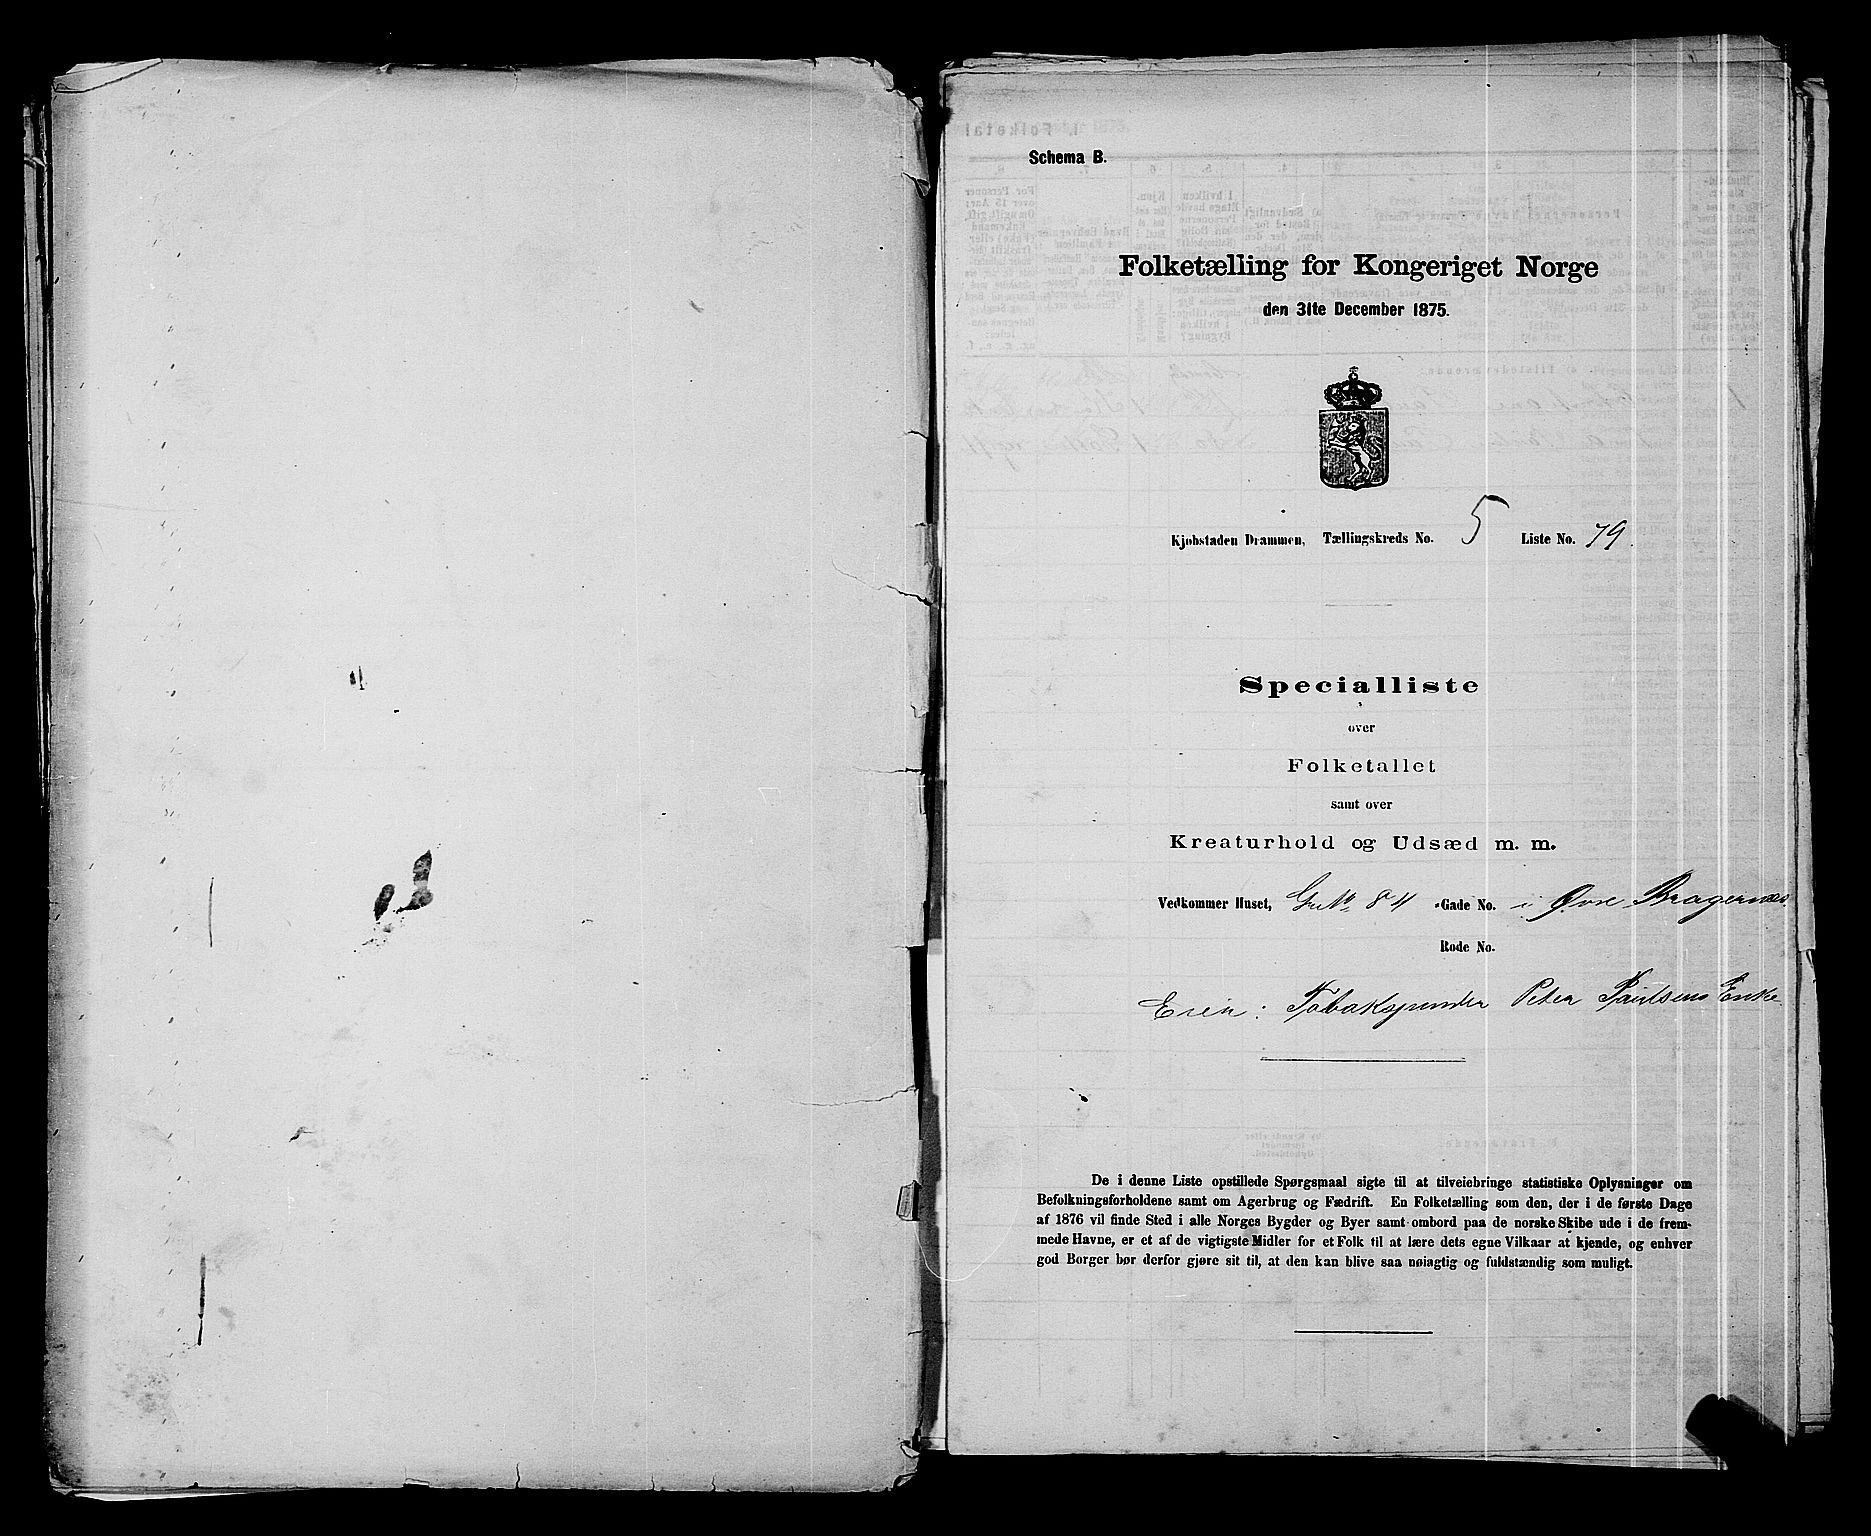 Schema B.
Folketælling for Kongeriget Norge
den 31te December 1875.
Kjøbstaden Drammen, Tællingskreds No. 5 Liste No. 79.
Specialliste
over
Folketallet
samt over
Kreaturhold og Udsæd m. m.
Vedkommer Huset, Gr No 84 Gade No. i Øvre Bragernæs.
Rode No.
Eier: Tobakspinder Peter Paulsens Enke
De i denne Liste opstillede Spørgsmaal sigte til at tilveiebringe statistiske Oplysninger om
Befolkningsforholdene samt om Agerbrug og Fædrift. En Folketælling som den, der i de første Dage
af 1876 vil finde Sted i alle Norges Bygder og Byer samt ombord paa de norske Skibe ude i de frem-
mede Havne, er et af de vigtigste Midler for et Folk til at lære dets egne Vilkaar at kjende, og enhver
god Borger bør derfor gjøre sit til, at den kan blive saa nøiagtig og fuldstændig som muligt.